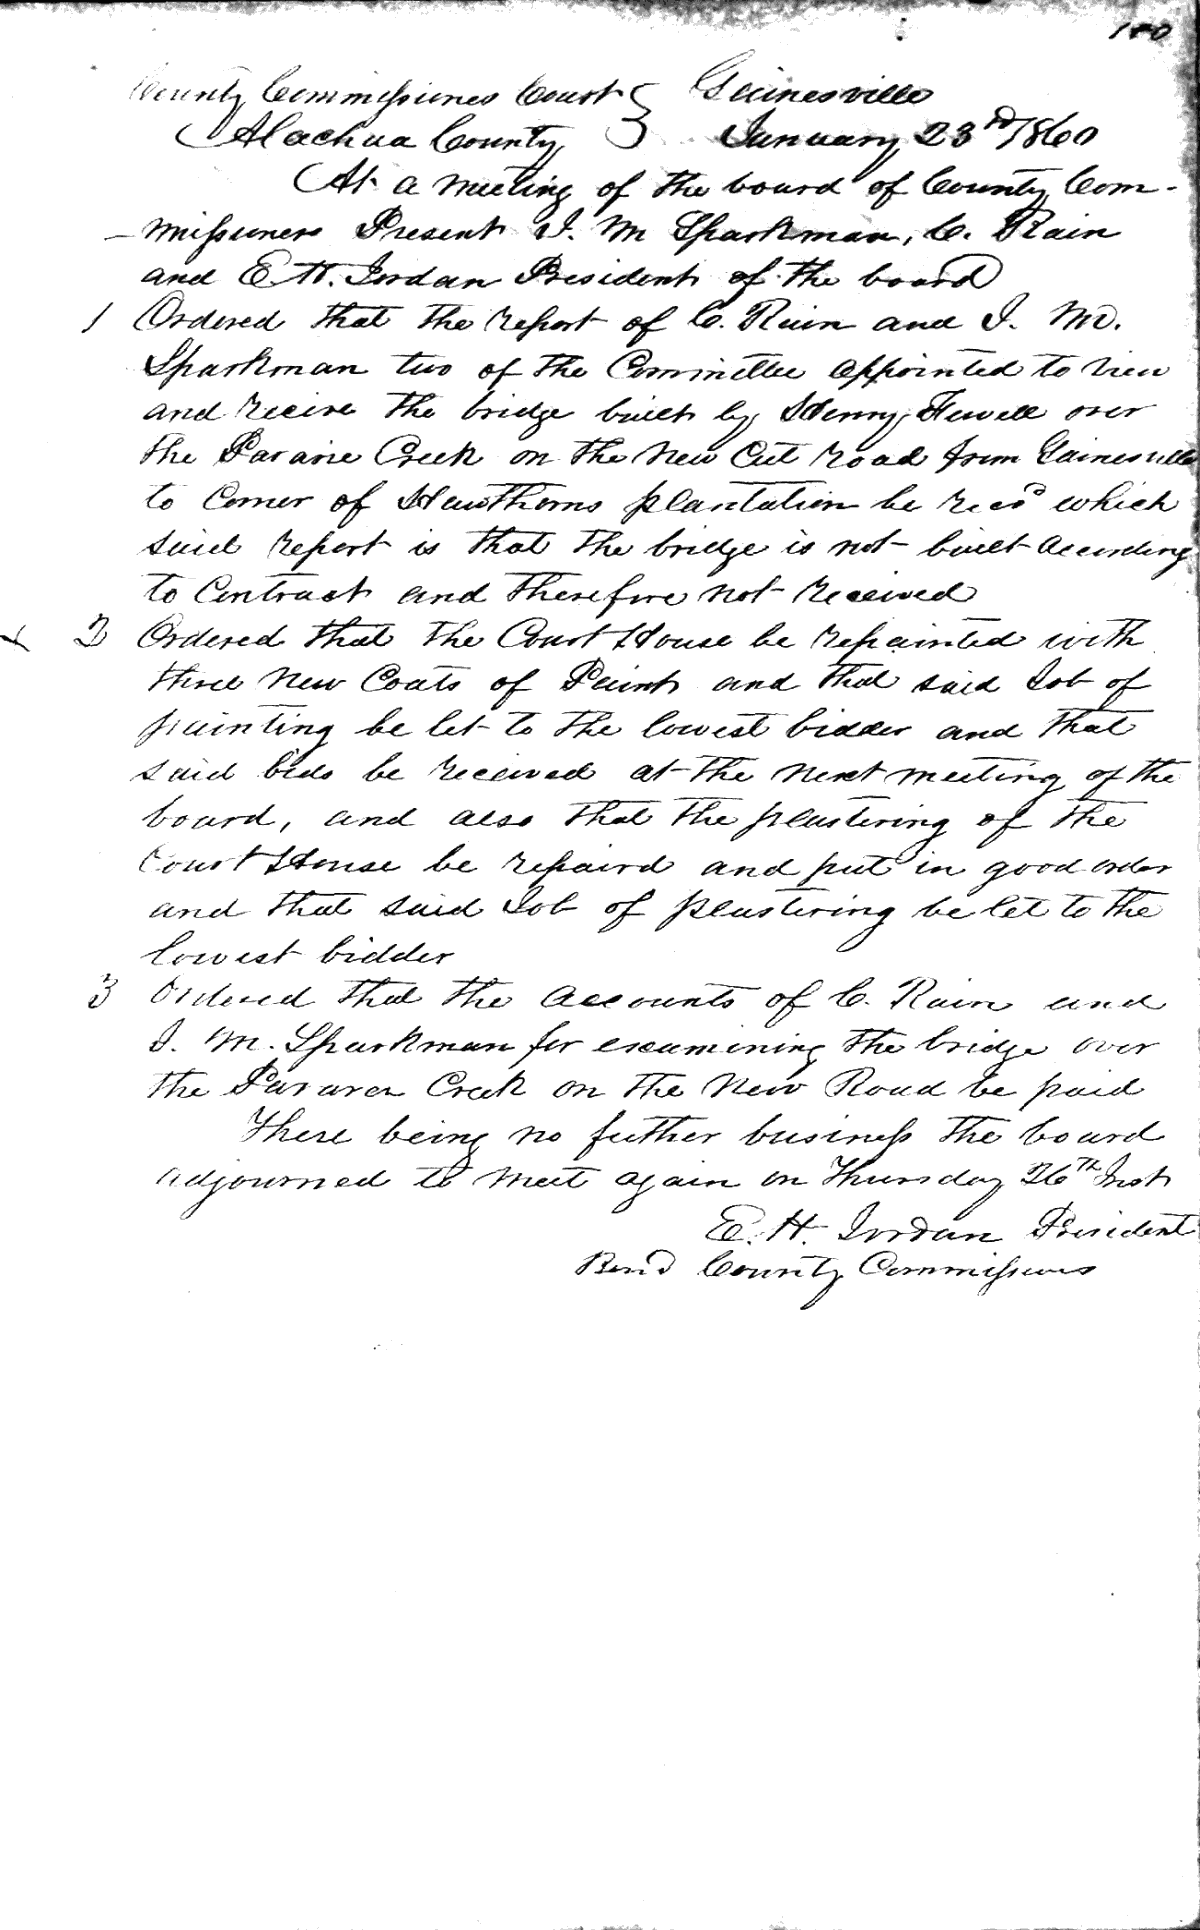 County Commissiones Court } Gainesville
Alachua County } January 23rd 1860
At a meeting of the board of County Com-
-missioners Present J. M Sparkman, C. Rain
and E H. Jordan President of the board
1 Ordered that the report of C. Rain and J. M.
Sparkman two of the Committee appointed to view
and receive the bridge built by Henry Fewell over
the Pararie Creek on the New Cut road from Gainesville
to Corner of Hawthorns plantation be recd which
said report is that the bridge is not built according
to Contract and therefore not received
2 Ordered that the Court House be repainted with
three New Coats of Paint and that said Job of
painting be let to the lowest bidder and that
said bids be received at the next meeting of the
board, and also that the plastering of the
Court House be repaird and put in good order
and that said Job of plastering be let to the
lowest bidder
3 Ordered that the accounts of C. Rain and
J. M. Sparkman for examining the bridge over
the Creek on the New Road be paid
There being no futher business the board
adjourned to meet again on Thursday 26th Inst
E. H. Jordan President
County Commissioners